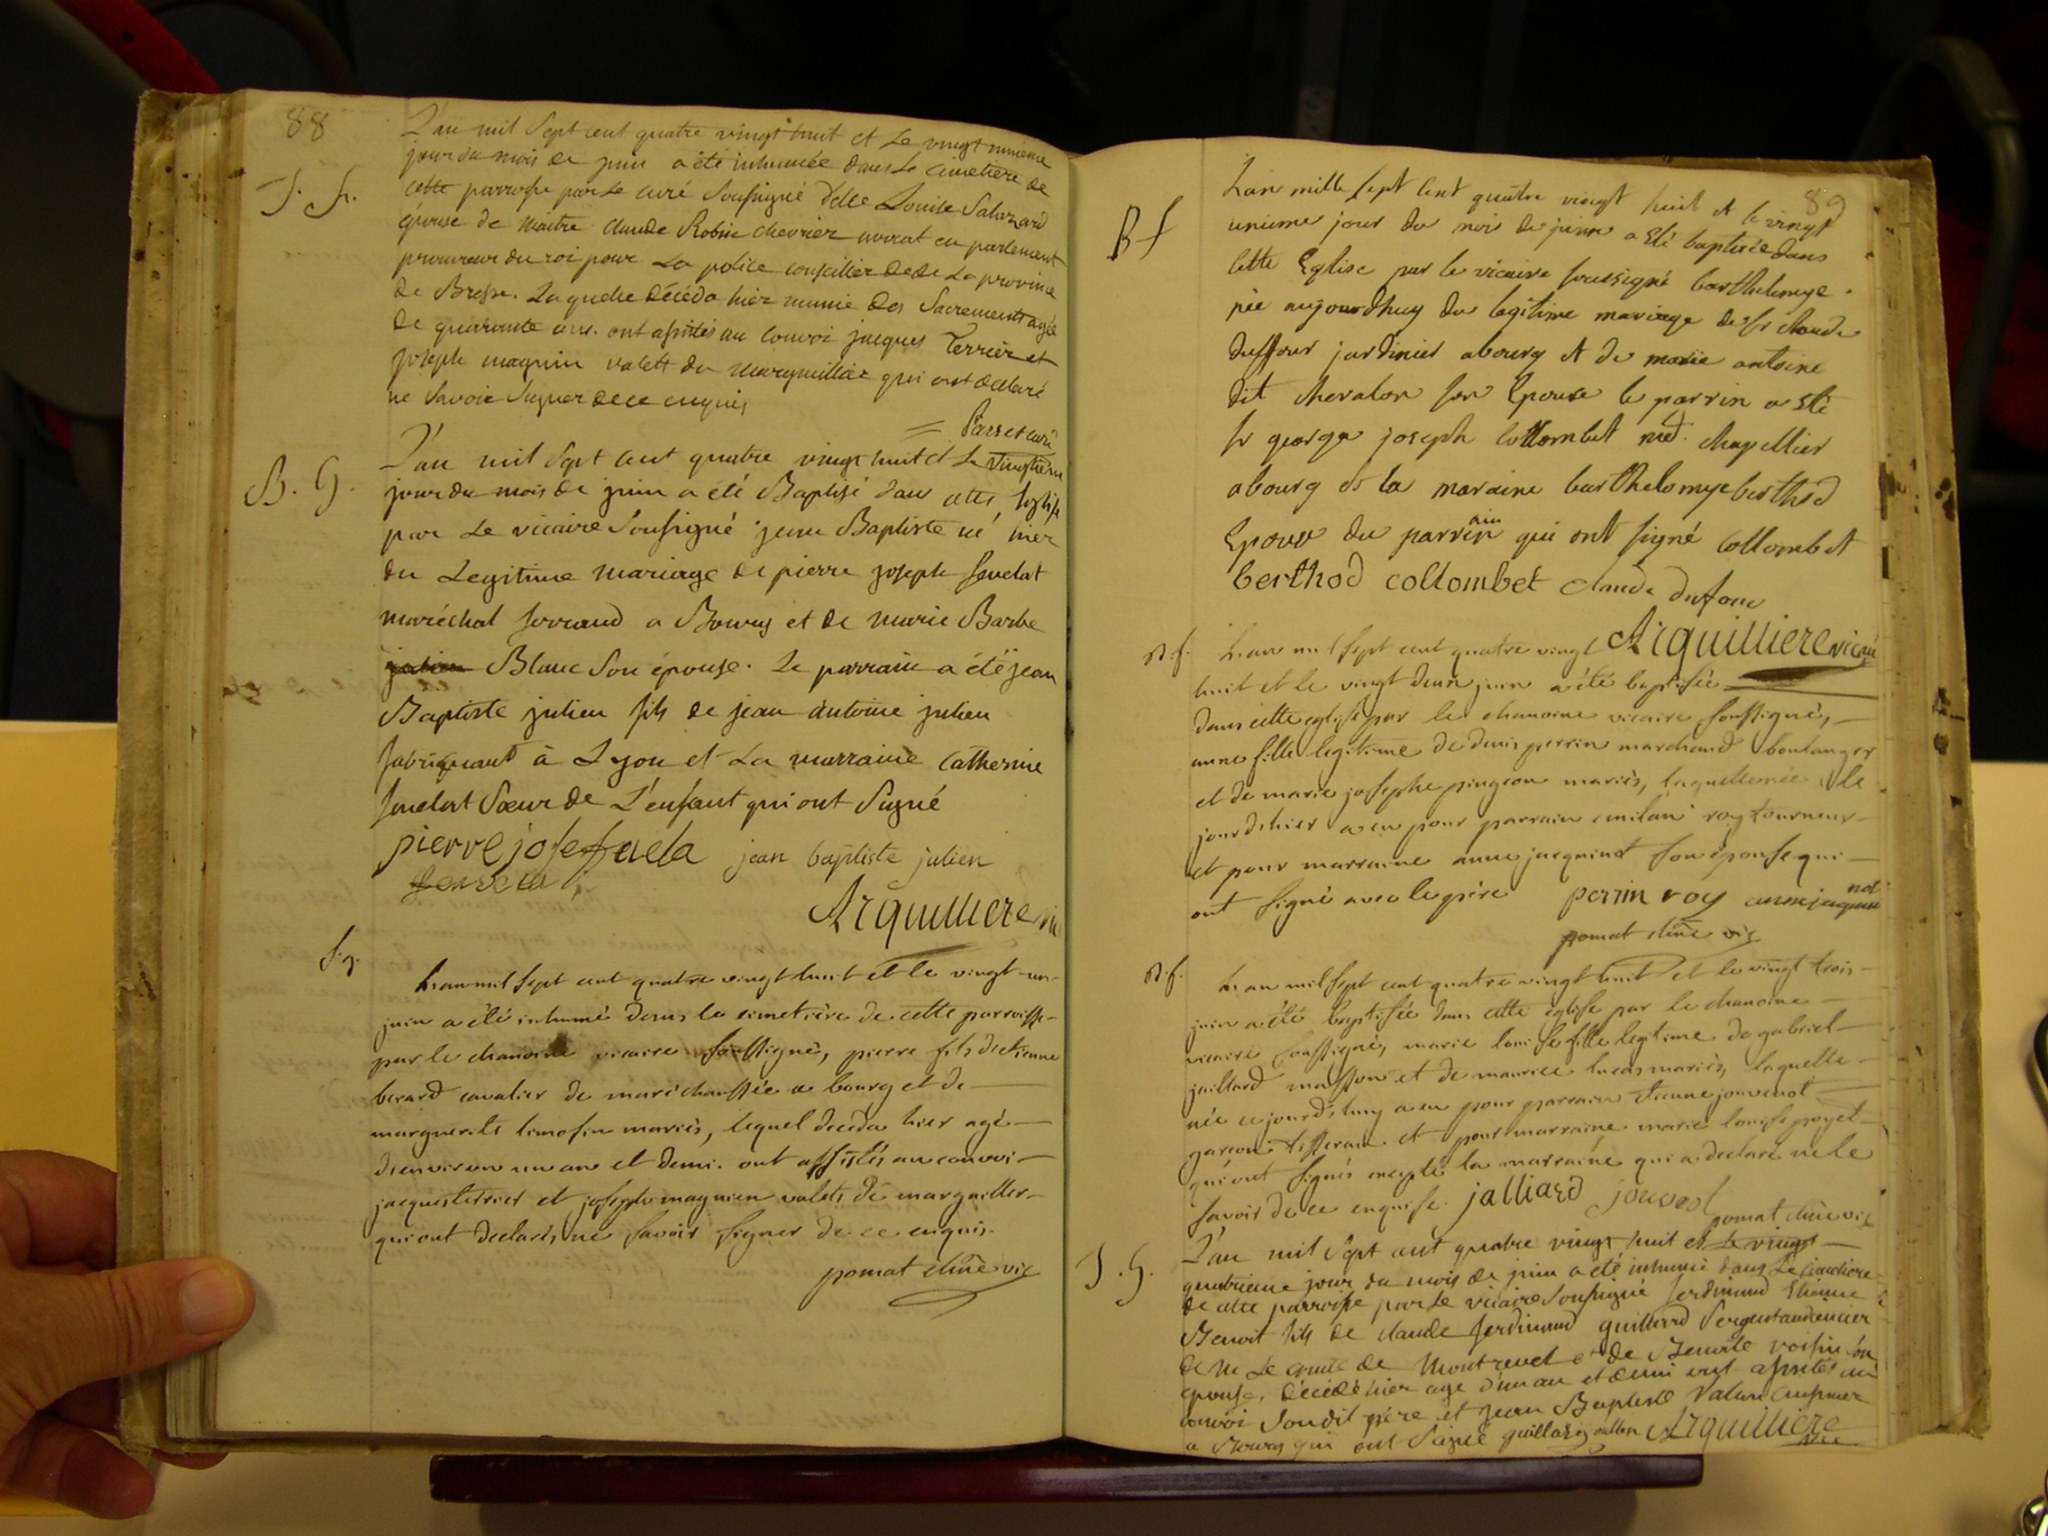 88
L'an mil sept cent quatre vingt huit et Le vingt unieme
jour du mois de juin a été inhumée dans Le cimetiere de
cette parroisse par Le curé Soussigné delle Louise Salazard
épouse de maitre claude Robin chevrier avocat en parlement
procureur du roi pour La police conseiller de La province
de Bresse. Laquelle décéda hier munie des Sacrements agée
de quarante ans. ont assistés au convoi jacques Terrier et
joseph magnin valets du marguillier qui ont déclaré
ne Savoir Signer de ce enquis
curé
B. G.
L'an mil Sept cent quatre vingt huit et Le vingtieme
jour du mois de juin a été Baptisé dans cette Eglise
par Le vicaire Soussigné jean Baptiste né hier
du Legitime mariage de pierre joseph
maréchal ferrand a Bourg et de marie Barbe
Blanc Son épouse. Le parrain a été jean
Baptiste julien fils de jean antoine julien
fabriquant à Lyon et La marraine catherine
Soeur de L'enfant qui ont Signé
pierre josef jean baptiste julien
Arquilliere vic
S. g.
L'an mil sept cent quatre vingt huit et le vingt-un-
juin a été inhumé dans le cimetière de cette parroisse-
par le chanoine vicaire soussigné, pierre fils d'etienne
berard cavalier de maréchaussée a bourg et de
marguerite limosin mariés, lequel deceda hier agé
d'environ un an et demi. ont assistés au convoi-
jacques terrier et joseph magnien valets de marguiller-
qui ont declarés ne savoir signer de ce enquis.
pomat chne vic
89
B f
L'an mille sept cent quatre vingt huit et le vingt
unieme jour du mois de juin a été baptisée dans
cette Eglise par le vicaire soussigné barthelemye
née aujourdhuy du legitime mariage de sr claude
duffour jardinier abourg et de marie antoine
dit chevalon son Epouse le parrin a Eté
sr george joseph Collombet md. chapellier
abourg et la maraine barthelomye berthod
Epouse du parrin qui ont signé Collombet
berthod collombet claude dufour
Arquilliere vicaire
B. f.
L'an mil sept cent quatre vingt
huit et le vingt deux juin a été baptisée
dans cette eglise par le chanoine vicaire soussigné,
anne fille legitime de denis perrin marchand boulanger
et de marie josephe pingeon mariés, laquelle née le
jour d'hier a eu pour parrain emilan roy tourneur
et pour marraine anne jacquinot son épouse qui
ont signé avec le père perrin roy anne jaquinot
pomat chne vic
B. f.
L'an mil sept cent quatre vingt huit et le vingt trois
juin a été baptisée dans cette église par le chanoine
vicaire soussigné, marie louise fille legitime de gabriel
jaillard masson et de maurice lucas mariés, laquelle
née ce jourd'huy a eu pour parrain etienne jouvenot
garçon tisseran et pour marraine marie louise poyet
qui ont signés excepté la marraine qui a declaré ne le
savoir de ce enquise. jalliard
pomat chne vic
L'an mil Sept cent quatre vingt huit et Le vingt
quatrieme jour du mois de juin a été inhumé dans Le cimetiere
de cette parroisse par Le vicaire Soussigné ferdinand Etienne
Benoit fils de claude ferdinand guillard Sergent audiencier
de M Le comte de Montrevel et de Benoite voisin Son
épouse, décédé hier agé d'un an et demi ont assistés au
convoi Soudit père et jean Baptiste
a Bourg qui ont Signé Arquilliere
vic